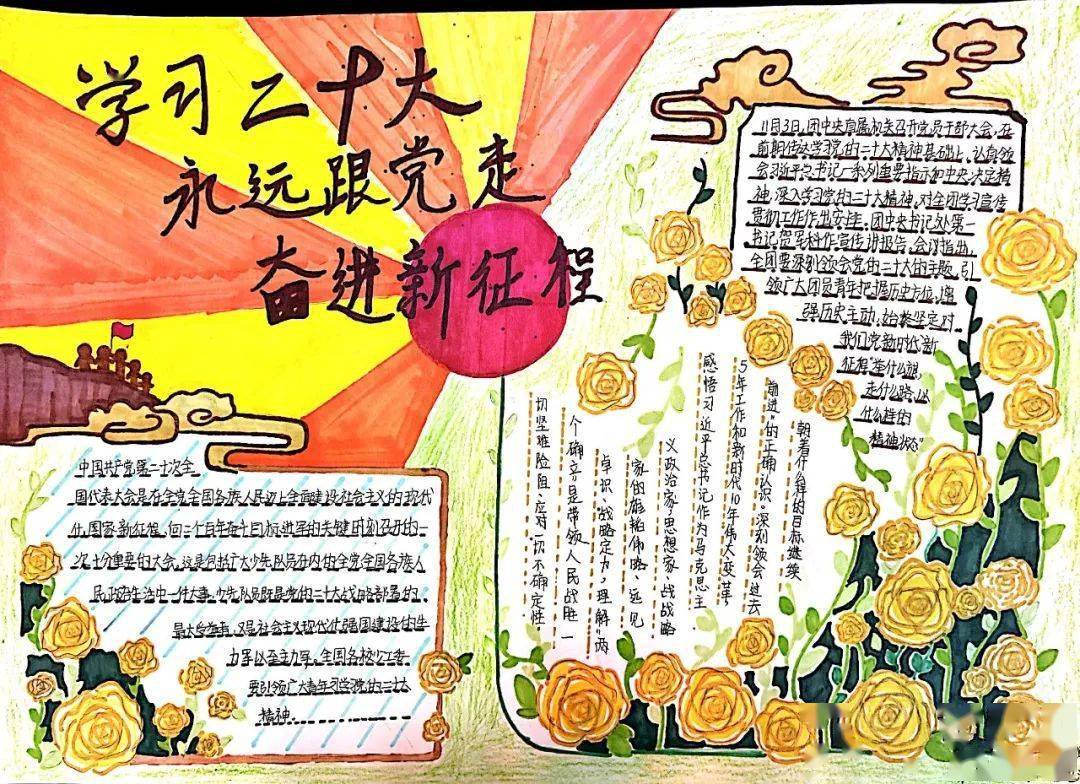 学习二十大
永远跟党走
奋进新征程
11月3日,团中央直属机关召开党员干部大会,在
前期传达学习党的二十大精神基础上,认真领
会习近平总书记一系列重要指示和中央决定精
神,深入学习党的二十大精神,对全团学习宣传
贯彻工作作出安排。团中央书记处第一
书记贺军科作宣传讲报告。会议指出,
全团要深刻领会党的二十大的主题,引
领广大团员青年把握历史方位,增
强历史主动,始终坚定对
我们党新时代新
征程"举什么旗,
走什么路,以
什么样的
精神状态"
朝着什么样的目标继续
前进"的正确认识。深刻领会过去
5年工作和新时代10年伟大变革,
感悟习近平总书记作为马克思主
义政治家、思想家、战战略
家的雄韬伟略、远见
卓识、战略定力,理解"两
个确立"是带领人民战胜一
切坚难险阻、应对一切不确定性
中国共产党第二十次全
国代表大会是在全党全国各族人民迈上全面建设社会主义的现代
化国家新征程,向二个百年奋斗目标进军的关键时刻召开的一
次十分重要的大会。这是包括广大少先队员在内的全党全国各族人
民政治生活中一件大事,少先队员既是党的二十大战略部署的,
最大受益者,又是社会主义现代化强国建设的生
力军以至主力军。全国各校少工委
要引领广大青年习学党的二十大
精神。